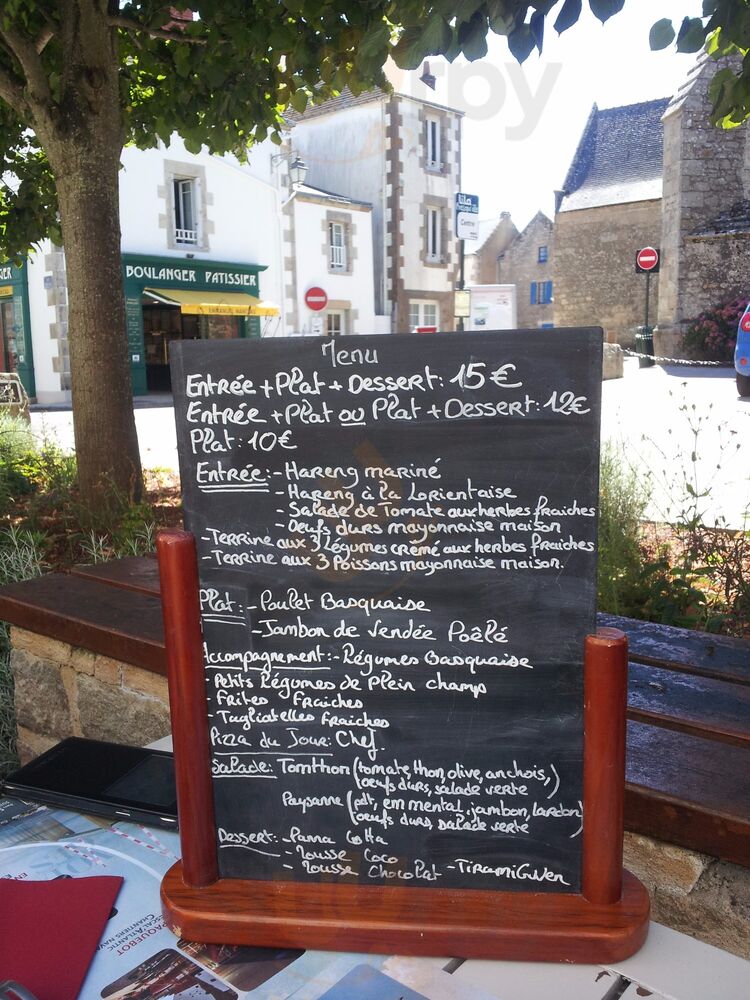 BOULANGER PATISSIER
Menu
Entrée + Plat + Dessert: 15€
Entrée + Plat ou Plat + Dessert: 12€
Plat: 10€
Entrée: - Hareng mariné
- Hareng à la Lorientaise
- Salade de Tomate aux herbes fraiches
- Oeufs durs mayonnaise maison
- Terrine aux 3 Légumes crémé aux herbes fraiches
- Terrine aux 3 Poissons mayonnaise maison.
Plat: - Poulet Basquaise
- Jambon de Vendée Poêlé
Accompagnement: - Légumes Basquaise
- Petits Légumes de Plein champ
- Frites Fraiches
- Tagliatelles fraiches
Pizza du Jour: Chef.
Salade: Tomthon (tomate, thon, olive, anchois,)
oeufs durs, salade verte
Paysanne (pdt, emmental, jambon, lardon)
oeufs durs, salade verte
Dessert: - Panna Cotta
- Mousse Coco
- Mousse Chocolat - TiramiGwen
PAQUEBOT